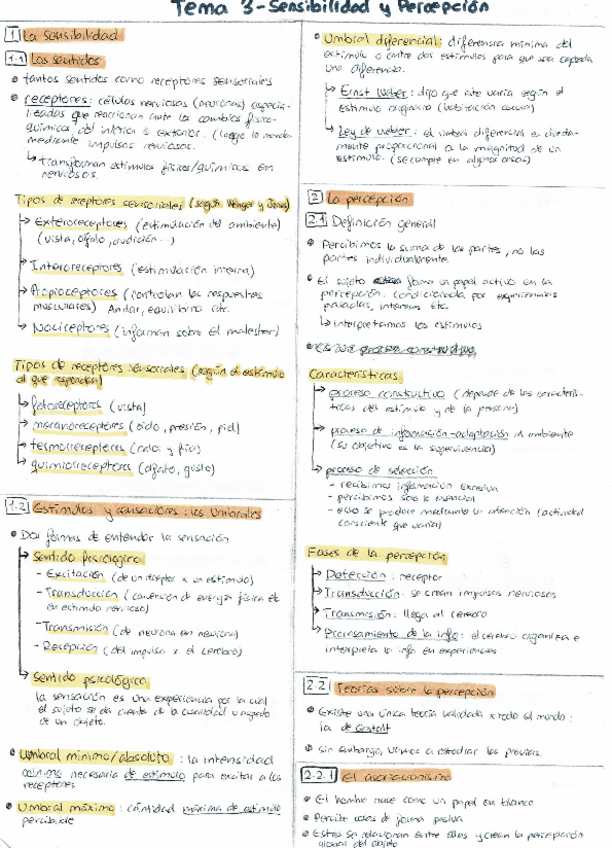 Tema 3 - Sensibilidad y Percepción
1 La sensibilidad
1.1 Los sentidos
• tantos sentidos como receptores sensoriales
• receptores: células nerviosas (neuronas) especia-
lizadas que reaccionan ante los cambios físico-
químicos del interior o exterior. (luego lo manda
mediante impulsos nerviosos.
↳ transforman estímulos físicos/químicos en
nerviosos.
Tipos de receptores sensoriales (según Wenger y Jones)
→ Exteroreceptores (estimulación del ambiente)
(vista, olfato, audición...)
→ Interoreceptores (estimulación interna)
→ Propioceptores (controlan las respuestas
musculares) Andar, equilibrio etc.
→ Nociceptores (informan sobre el malestar)
Tipos de receptores sensoriales (según el estímulo
al que responden)
→ fotoreceptores (vista)
→ mecanoreceptores (oído, presión, piel)
→ termorreceptores (calor y frío)
→ quimiorreceptores (olfato, gusto)
1.2 Estímulos y sensaciones: los Umbrales
• Dos formas de entender la sensación
→ Sentido fisiológico
- Excitación (de un receptor x un estímulo)
- Transducción (conversión de energía física el
en estímulo nervioso)
- Transmisión (de neurona en neurona)
- Recepción (del impulso x el cerebro)
→ Sentido psicológico
la sensación es una experiencia por la cual
el sujeto se da cuenta de la cualidad u aspecto
de un objeto.
• Umbral mínimo/absoluto: la intensidad
mínima necesaria de estímulo para excitar a los
receptores
• Umbral máximo: cantidad máxima de estímulo
percibible
• Umbral diferencial: diferencia mínima del
estímulo o entre dos estímulos para que sea captada
una diferencia.
→ Ernst Weber: dijo que este varía según el
estímulo originario
→ Ley de weber: el umbral diferencial es directa-
mente proporcional a la magnitud de un
estímulo. (se cumple en algunos casos)
2 La percepción
2.1 Definición general
• Percibimos la suma de las partes, no las
partes individualmente.
• El sujeto toma un papel activo en la
percepción. Condicionada por experiencias
pasadas, intereses etc.
↳ interpretamos los estímulos
proceso constructivo
Características
→ proceso constructivo (depende de las caracterís-
ticas del estímulo y de la persona)
→ proceso de información-adaptación al ambiente
(su objetivo es la supervivencia)
→ proceso de selección
- recibimos información excesiva
- percibimos solo lo esencial
- esto se produce mediante la atención (actividad
consciente que varía)
Fases de la percepción
→ Detección: receptor
→ Transducción: se crean impulsos nerviosos
→ Transmisión: llega al cerebro
→ Procesamiento de la info: el cerebro organiza e
interpreta la info en experiencias
2.2 Teorías sobre la percepción
• Existe una única teoría validada x todo el mundo:
la de Gestalt
• sin embargo, vamos a estudiar las previas.
2.2.1 El asociacionismo
• El hombre nace como un papel en blanco
• Percibe cosas de forma pasiva
• Estas se relacionan entre ellas y crean la percepción
global del objeto